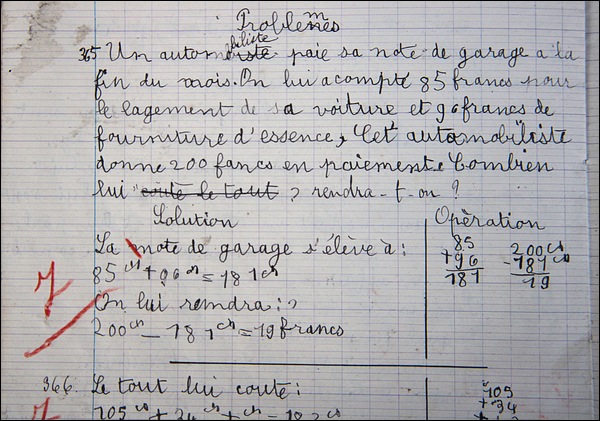 Problemmes
365 Un automobiliste paie sa note de garage a la
fin du mois. On lui a compté 85 francs pour
le lagement de sa voiture et 96 francs de
fourniture d'essence, Cet automobiliste
donne 200 fancs en paiement. Combien
lui coute le tout ? rendra-t-on ?
Solution
Opèration
La note de garage s'élève à :
85 + 96 = 181
On lui remdra :
200 - 181 = 19 francs
85
+96
181
200
-181
19
366. Le tout lui coute :
105 + 34 +
105
+34